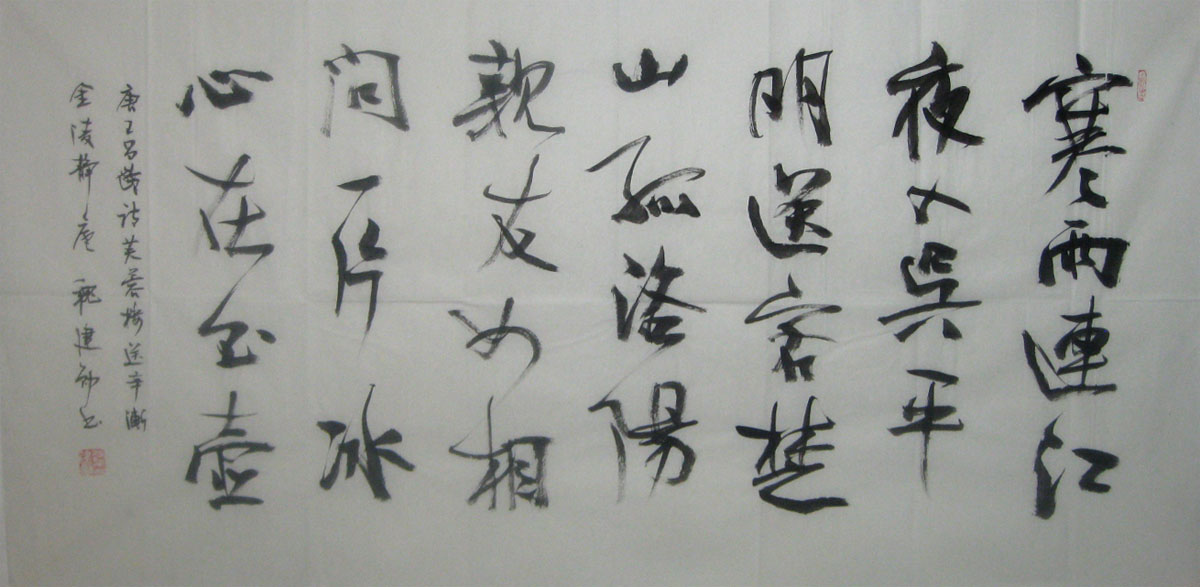 寒雨連江
夜入吳平
明送客楚
山孤洛陽
親友如相
問一片冰
心在玉壺
唐王昌齡诗芙蓉楼送辛漸
金陵静庵 建书